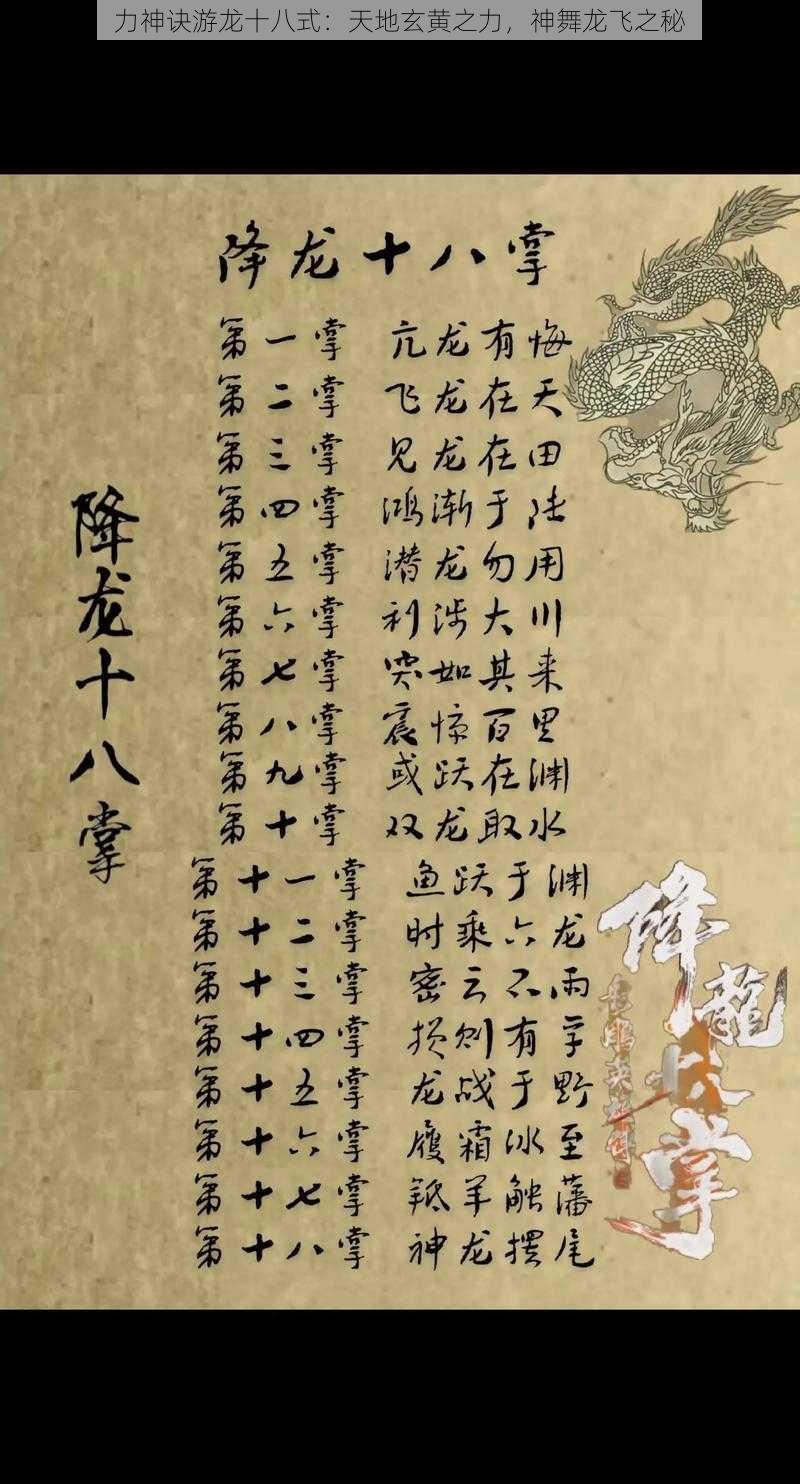 力神诀游龙十八式：天地玄黄之力，神舞龙飞之秘
降龙十八掌
第一掌 亢龙有悔
第二掌 飞龙在天
第三掌 见龙在田
第四掌 鸿渐于陆
第五掌 潜龙勿用
第六掌 利涉大川
第七掌 突如其来
第八掌 震惊百里
第九掌 或跃在渊
第十掌 双龙取水
第十一掌 鱼跃于渊
第十二掌 时乘六龙
第十三掌 密云不雨
第十四掌 损则有孚
第十五掌 龙战于野
第十六掌 履霜冰至
第十七掌 羝羊触藩
第十八掌 神龙摆尾
降龙十八掌
降龍
掌